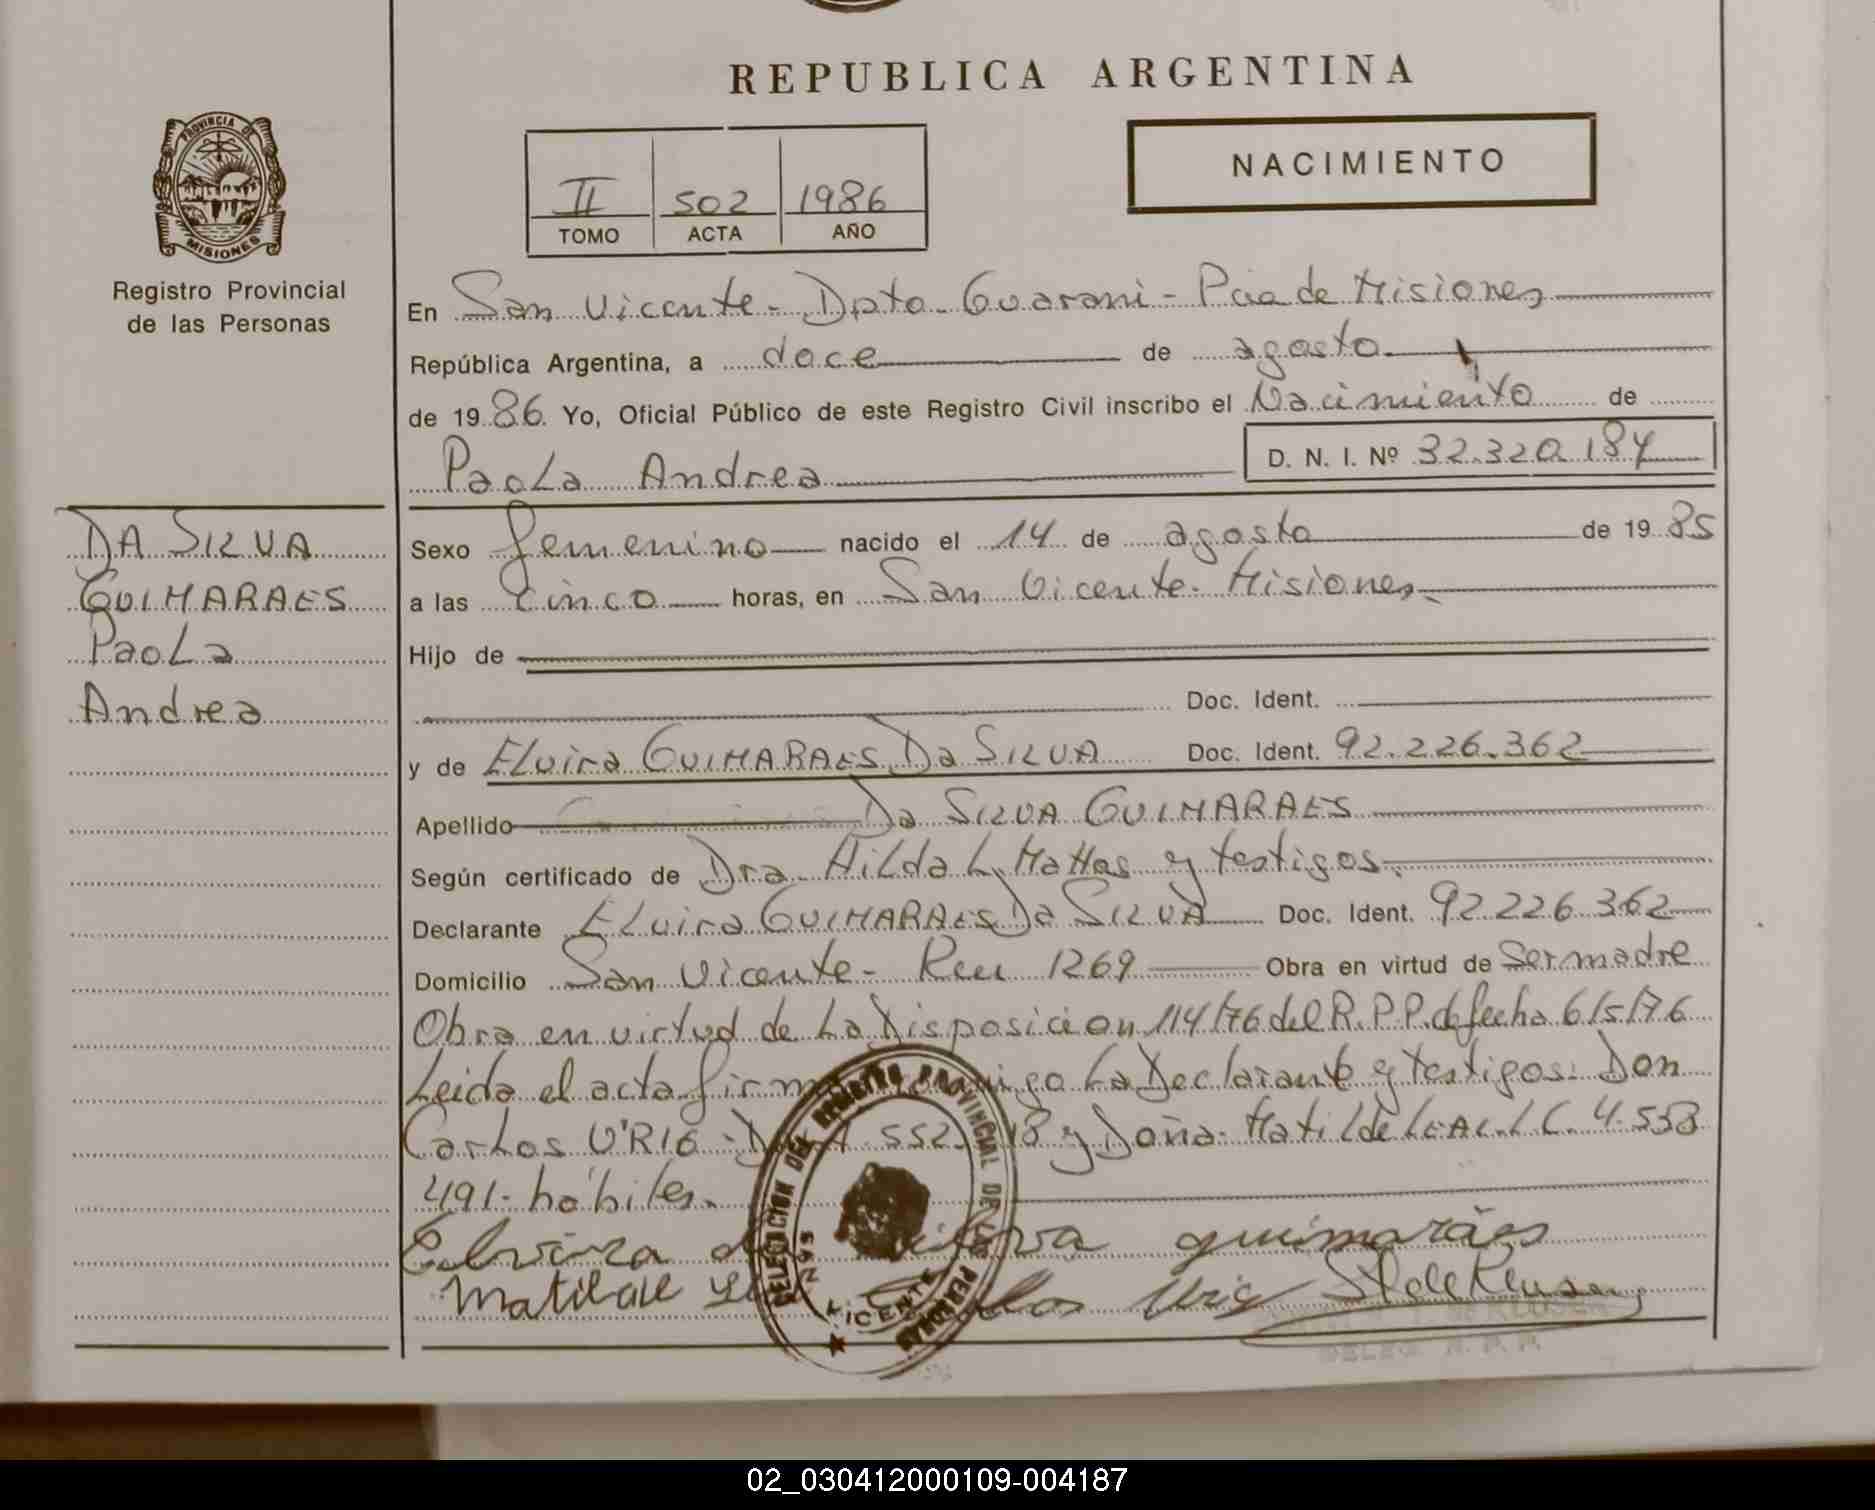 REPUBLICA ARGENTINA
PROVINCIA DE
MISIONES
Registro Provincial
de las Personas
II 502 1986
TOMO ACTA AÑO
NACIMIENTO
En San Vicente - Dpto. Guarani - Pcia de Misiones
República Argentina, a doce de agosto
de 19 86 Yo, Oficial Público de este Registro Civil inscribo el Nacimiento de
Paola Andrea D. N. I. Nº 32.320.187
DA SILVA
GUIMARAES
Paola
Andrea
Sexo femenino nacido el 14 de agosto de 19 85
a las cinco horas, en San Vicente - Misiones
Hijo de
Doc. Ident.
y de Elvira GUIMARAES Da SILVA Doc. Ident. 92.226.362
Apellido Da SILVA GUIMARAES
Según certificado de Dra. Hilda L. Mattos y testigos.
Declarante Elvira GUIMARAES Da SILVA Doc. Ident. 92.226.362
Domicilio San Vicente - 1269 Obra en virtud de Ser madre
Obra en virtud de La Disposicion 114/76 del R.P.P. de fecha 6/5/76
Leida el acta firma conmigo La Declarante y testigos: Don
Carlos y Doña Matilde LEAL L.C. 4.538
491 - hábiles.
Elvira da Silva guimarães
Matilde Carlos
DELEGACION DEL REGISTRO PROVINCIAL DE LAS PERSONAS
SAN VICENTE
DELEG. R. P. P.
02_030412000109-004187